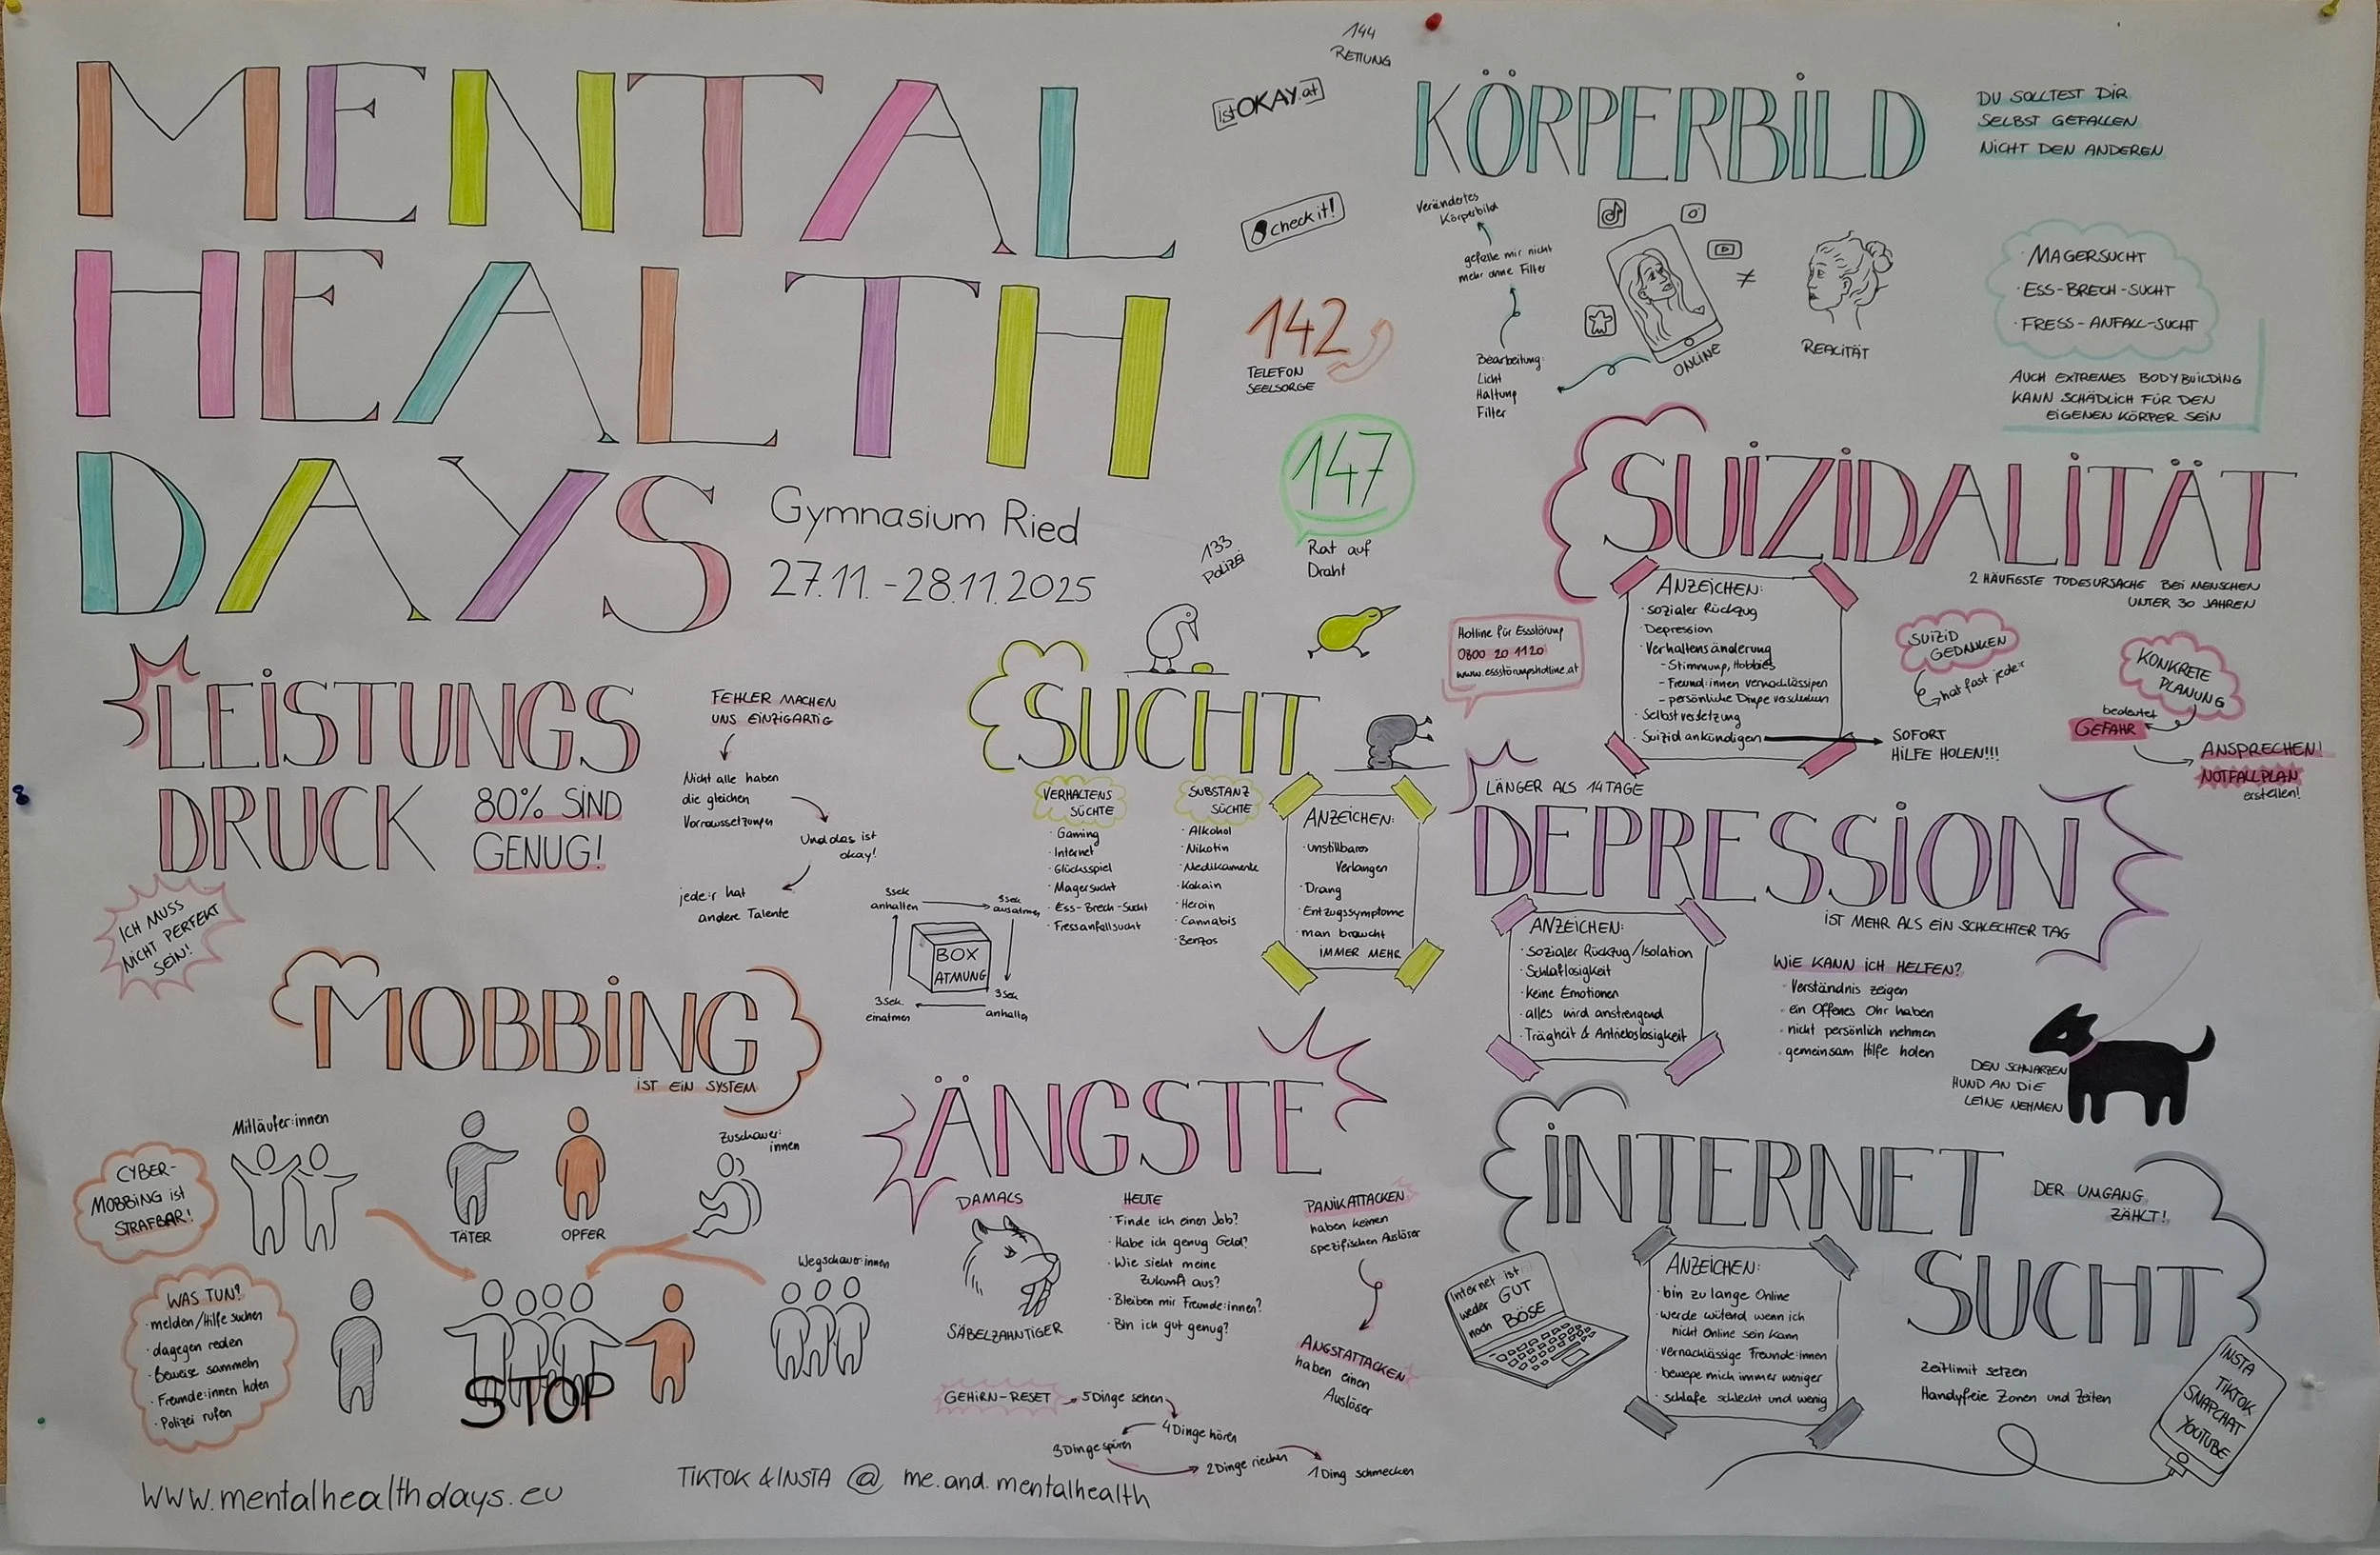 MENTAL
HEALTH
DAYS
Gymnasium Ried
27.11.-28.11.2025
144
RETTUNG
istOKAY.at
checkit!
142
TELEFON
SEELSORGE
147
Rat auf
Draht
133
POLIZEI
KÖRPERBILD
DU SOLLTEST DIR
SELBST GEFALLEN
NICHT DEN ANDEREN
Verändertes
Körperbild
gefalle mir nicht
mehr ohne Filter
Bearbeitung:
Licht
Haltung
Filter
ONLINE
≠
REALITÄT
· MAGERSUCHT
· ESS-BRECH-SUCHT
· FRESS-ANFALL-SUCHT
AUCH EXTREMES BODYBUILDING
KANN SCHÄDLICH FÜR DEN
EIGENEN KÖRPER SEIN
SUIZIDALITÄT
2 HÄUFIGSTE TODESURSACHE BEI MENSCHEN
UNTER 30 JAHREN
ANZEICHEN:
· sozialer Rückzug
· Depression
· Verhaltensänderung
- Stimmung, Hobbies
- Freund:innen vernachlässigen
- persönliche Dinge verschenken
· Selbstverletzung
· Suizid ankündigen
SOFORT
HILFE HOLEN!!!
SUIZID
GEDANKEN
hat fast jede:r
KONKRETE
PLANUNG
bedeutet
GEFAHR
ANSPRECHEN!
NOTFALLPLAN
erstellen!
Hotline für Essstörung
0800 20 1120
www.essstörungshotline.at
LEISTUNGS
DRUCK
80% SIND
GENUG!
ICH MUSS
NICHT PERFEKT
SEIN!
FEHLER MACHEN
UNS EINZIGARTIG
Nicht alle haben
die gleichen
Vorraussetzungen
Und das ist
okay!
jede:r hat
andere Talente
3sek
anhalten
3sek
ausatmen
BOX
ATMUNG
3 Sek.
einatmen
3 Sek
anhalten
SUCHT
VERHALTENS
SÜCHTE
· Gaming
· Internet
· Glücksspiel
· Magersucht
· Ess-Brech-Sucht
· Fressanfallsucht
SUBSTANZ
SÜCHTE
· Alkohol
· Nikotin
· Medikamente
· Kokain
· Heroin
· Cannabis
· Benzos
ANZEICHEN:
· unstillbares
Verlangen
· Drang
· Entzugssymptome
· man braucht
IMMER MEHR
LÄNGER ALS 14 TAGE
DEPRESSION
IST MEHR ALS EIN SCHLECHTER TAG
ANZEICHEN:
· Sozialer Rückzug/Isolation
· Schlaflosigkeit
· Keine Emotionen
· alles wird anstrengend
· Trägheit & Antriebslosigkeit
WIE KANN ICH HELFEN?
· Verständnis zeigen
· ein Offenes Ohr haben
· nicht persönlich nehmen
· gemeinsam Hilfe holen
DEN SCHWARZEN
HUND AN DIE
LEINE NEHMEN
MOBBING
IST EIN SYSTEM
Mitläufer:innen
TÄTER
OPFER
Zuschauer:
innen
Wegschauer:innen
CYBER-
MOBBING ist
STRAFBAR!
WAS TUN?
· melden/Hilfe suchen
· dagegen reden
· Beweise sammeln
· Freunde:innen holen
· Polizei rufen
STOP
ÄNGSTE
DAMALS
SÄBELZAHNTIGER
HEUTE
· Finde ich einen Job?
· Habe ich genug Geld?
· Wie sieht meine
Zukunft aus?
· Bleiben mir Freunde:innen?
· Bin ich gut genug?
PANIKATTACKEN
haben keinen
spezifischen Auslöser
ANGSTATTACKEN
haben einen
Auslöser
GEHIRN-RESET
5 Dinge sehen
4 Dinge hören
3 Dinge spüren
2 Dinge riechen
1 Ding schmecken
INTERNET
SUCHT
DER UMGANG
ZÄHLT!
Internet ist
weder GUT
noch BÖSE
ANZEICHEN:
· bin zu lange Online
· werde wütend wenn ich
nicht Online sein kann
· vernachlässige Freunde:innen
· bewege mich immer weniger
· schlafe schlecht und wenig
Zeitlimit setzen
Handyfreie Zonen und Zeiten
INSTA
TIKTOK
SNAPCHAT
YOUTUBE
www.mentalhealthdays.eu
TIKTOK & INSTA @ me.and.mentalhealth